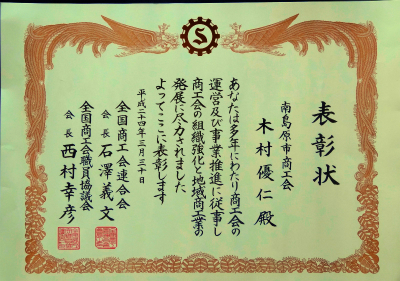 表彰状
南島原市商工会
木村優仁殿
あなたは多年にわたり商工会の
運営及び事業推進に従事し
商工会の組織強化と地域商工業の
発展に尽力されました
よってここに表彰します
平成二十四年三月三十日
全国商工会連合会
会長 石澤義文
全国商工会職員協議会
会長 西村幸彦